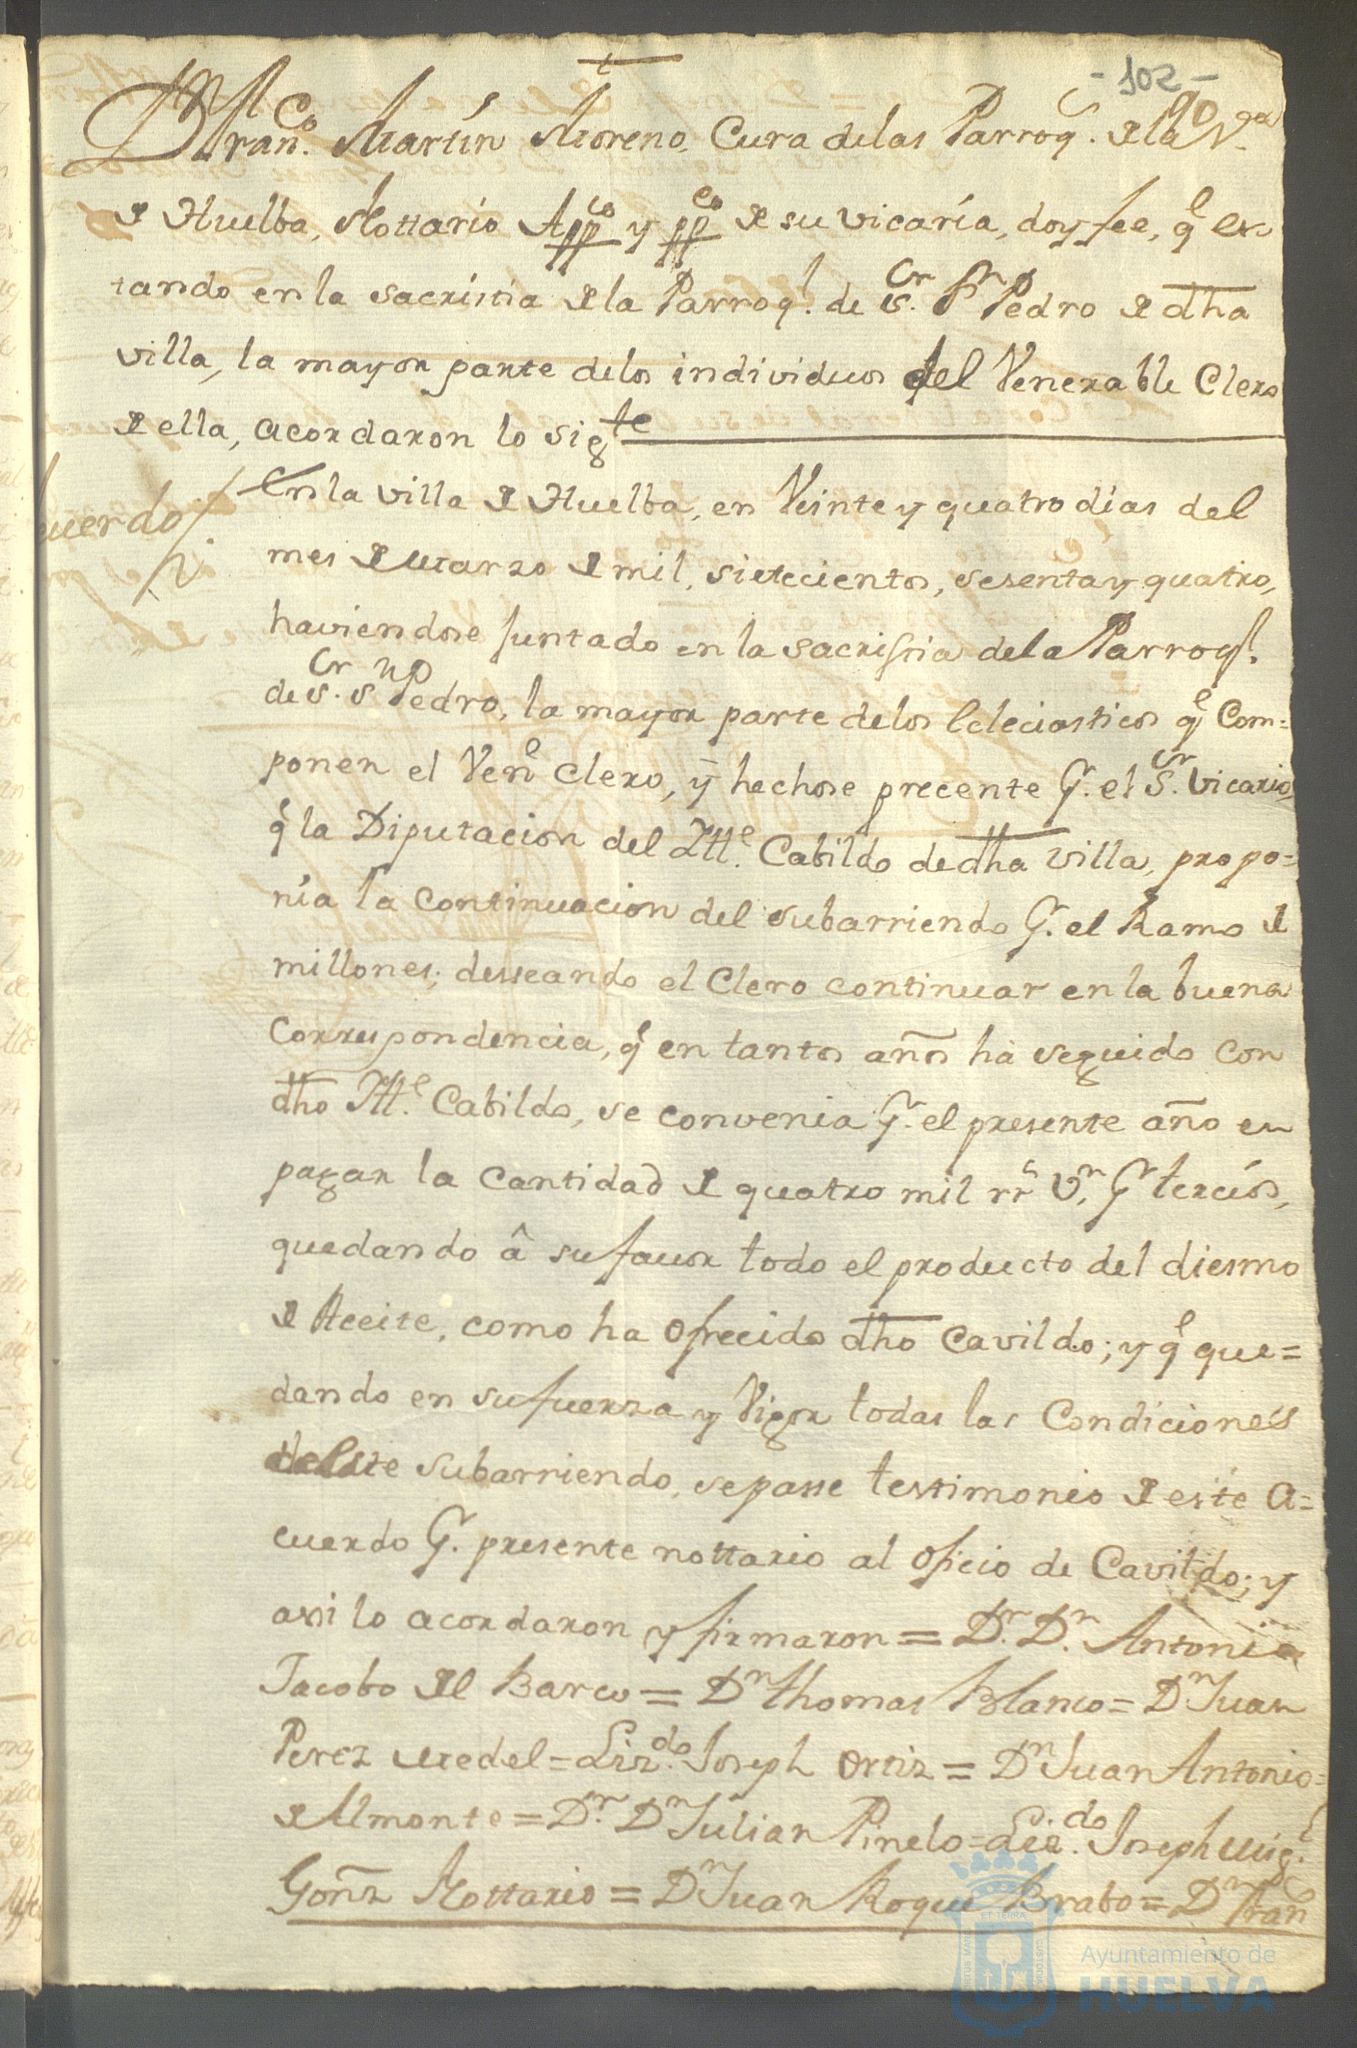 -102-
t
Dn Franco. Martín Moreno, Cura delas Parroqs. de la Va.
de Huelba, Nottario Appco y ppco de su vicaría, doy fee, q̃ es
tando en la sacristia de la Parroql. de Sr. Sn Pedro de dha
villa, la mayor parte delos individuos del Venerable Clero
de ella, acordaron lo sigte
cuerdo
En la villa de Huelba, en Veinte y quatro dias del
mes de Marzo de mil, sietecientos, sesenta y quatro,
haviendose juntado en la sacristia dela Parroql.
de Sr. Sn Pedro, la mayor parte delos Ecleciasticos q̃ Com=
ponen el Vene Clero, y hechose precente Pr. el Sr. Vicario,
q̃ la Diputacion del Ille. Cabildo de dha villa, propo=
nía la continuacion del subarriendo Pr. el Ramo de
millones; desseando el Clero continuar en la buena
correspondencia, q̃ en tantos años hà seguido con
dho Ille. Cabildo, se convenia Pr. el presente año en
pagar la cantidad de quatro mil rrs Vn, Pr tercios,
quedando â su favor todo el producto del diesmo
de Aceite, como ha ofrecido dho Cavildo; y q̃ que=
dando en su fuerza y Vigor todas las Condiciones
deste subarriendo, se passe testimonio de este A=
cuerdo Pr. presente nottario al oficio de Cavildo; y
assi lo acordaron y firmaron = Dr. Dn. Antonio
Jacobo del Barco = Dn Thomas Blanco = Dn Juan
Perez Medel = Lizdo. Joseph Ortiz = Dn Juan Antonio =
de Almonte = Dr. Dn Julian Pinelo = Licdo. Joseph Migl.
Gonz Nottario = Dn Juan Roque Brabo = Dn Franco
Ayuntamiento de
HUELVA